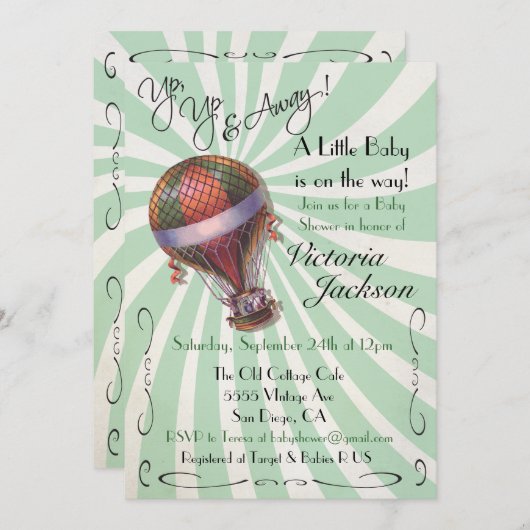 Up, Up
& Away!
A Little Baby
is on the way!
Join us for a Baby
Shower in honor of
Victoria
Jackson
Saturday, September 24th at 12pm
The Old Cottage Cafe
5555 VIntage Ave
San Diego, CA
RSVP to Teresa at babyshower@gmail.com
Registered at Target & Babies R US